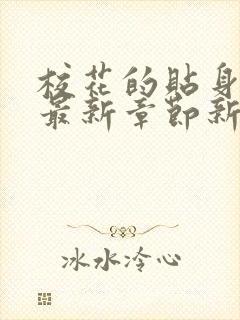 校花的貼身
最新章節新
冰水冷心